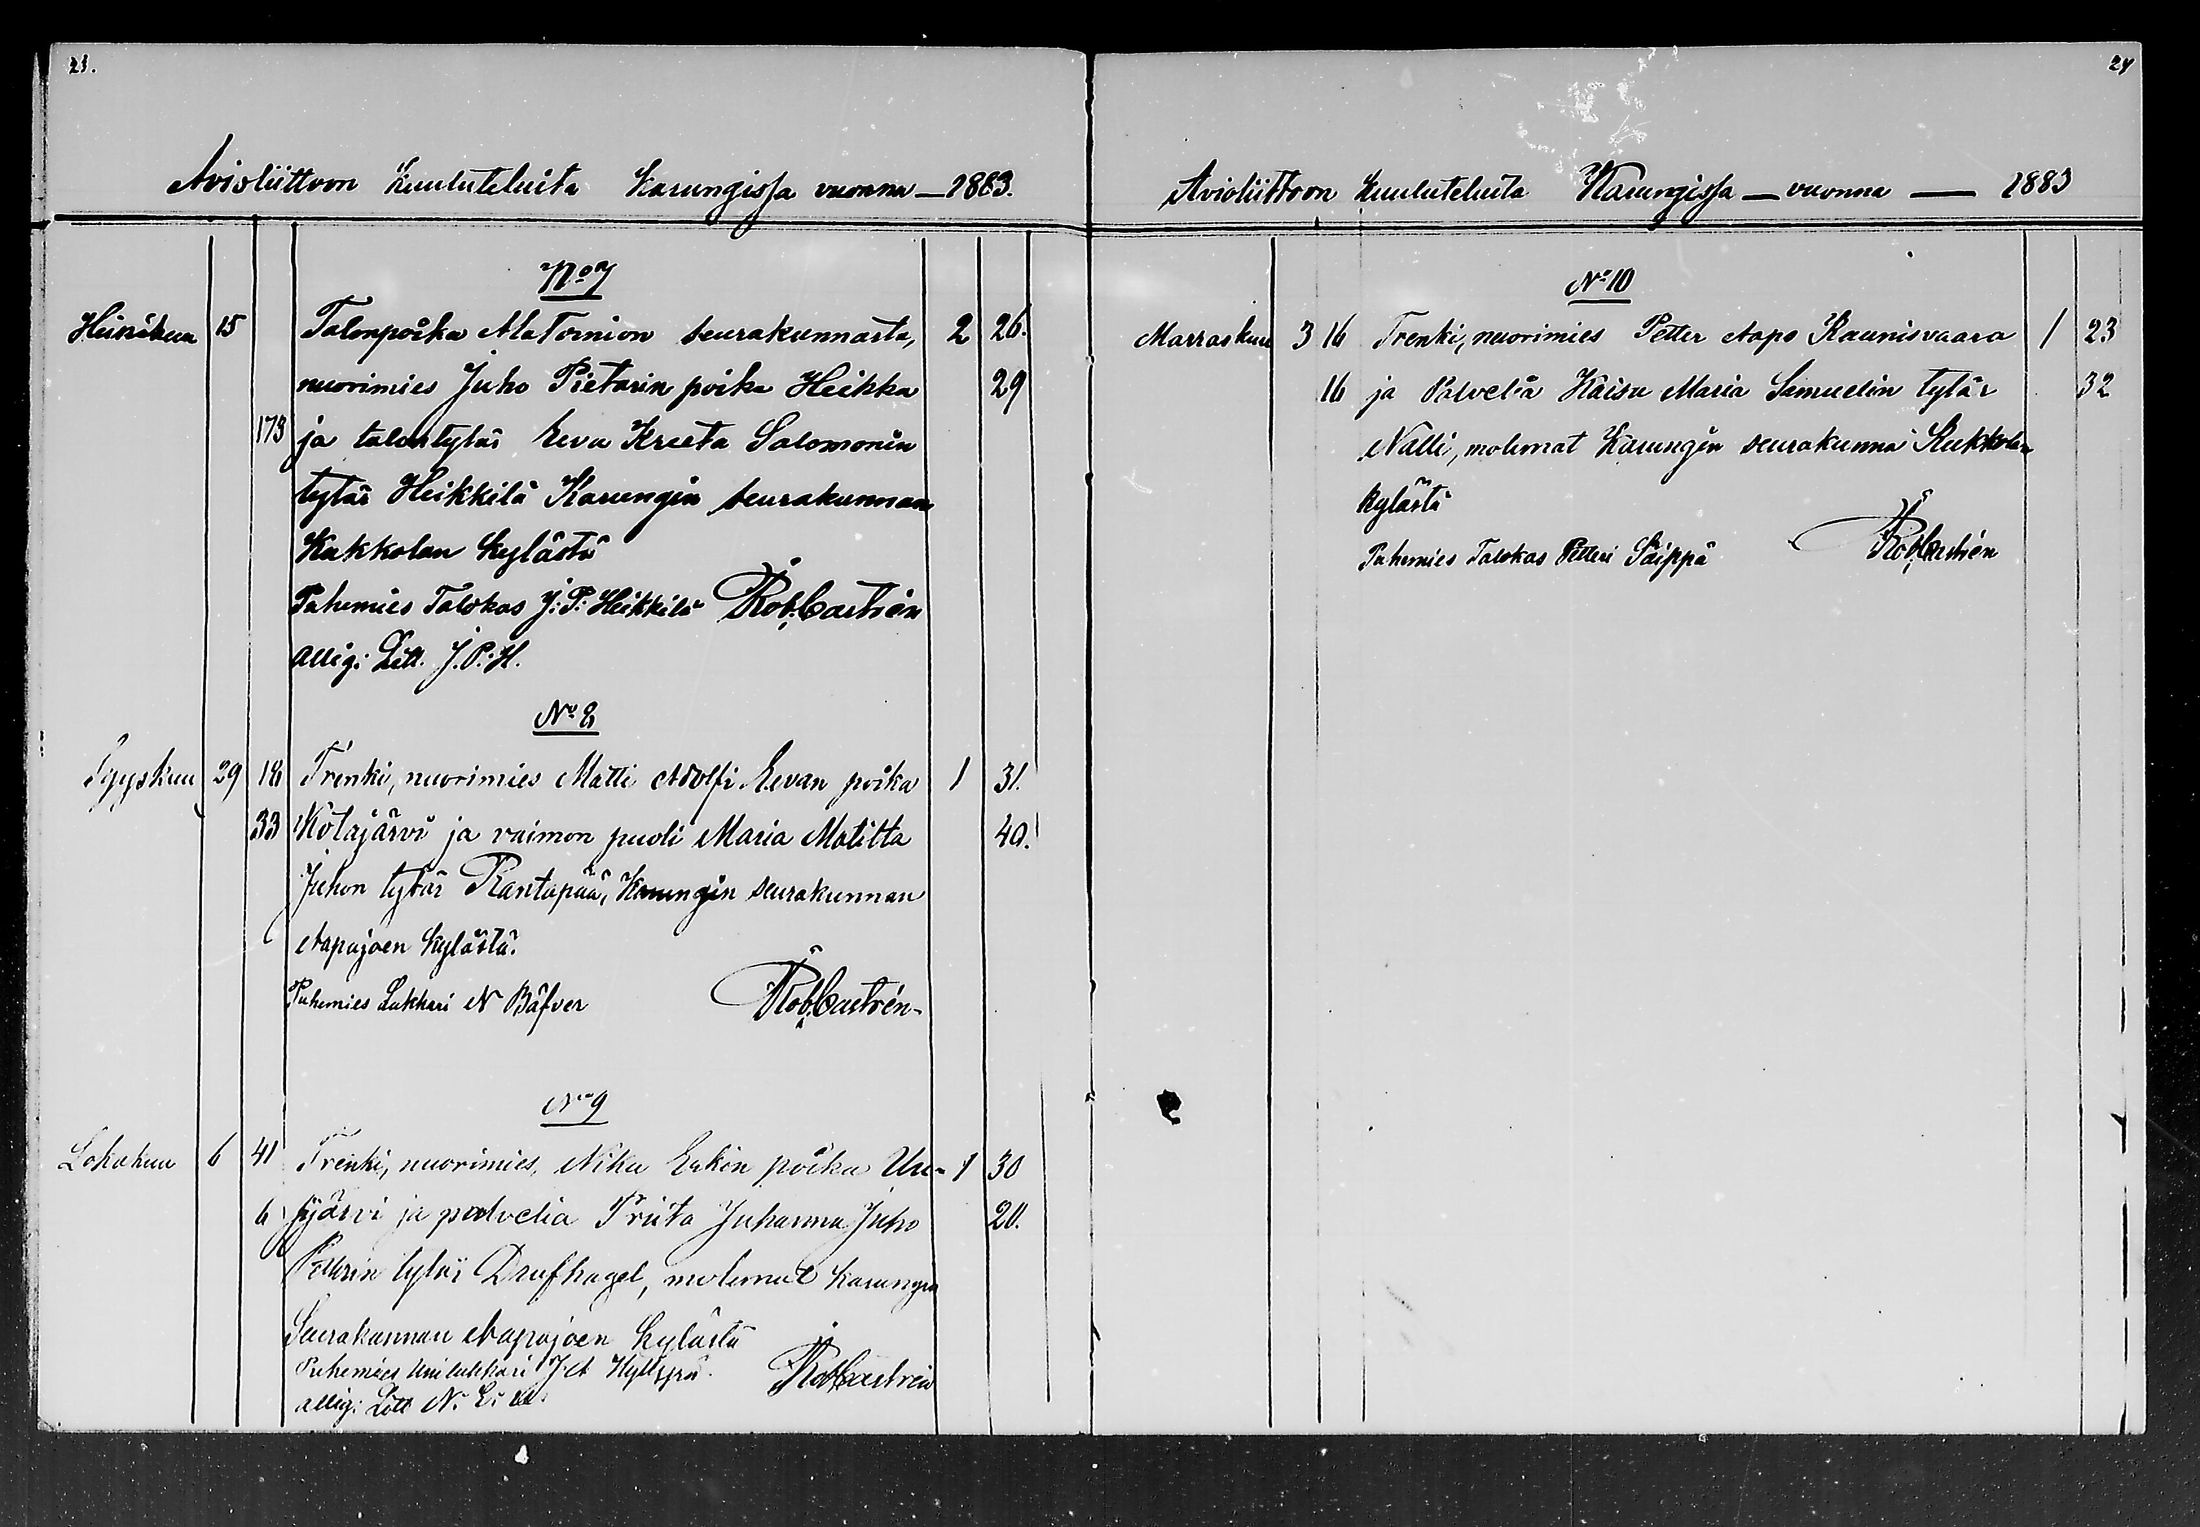 23.
Avioliittoon kuuluteluita Karungissa vuonna — 1883.
No 7
Heinäkuu 15 Talonpoika AlaTornion seurakunnasta, 2 26.
nuorimies Juho Pietarin poika Heikka 29
173 ja talontytär Eeva Kreeta Salomonin
tytär Heikkilä Karungin seurakunnan
Kukkolan kylästä
Puhemies Talokas J: P: Heikkilä Rob. Castrén
allig: Litt. J. P: H.
No 8
Syyskuu 29 18 Trenki, nuorimies Matti Adolfi Eevan poika 1 31.
33 Kotajärvi ja vaimon puoli Maria Matilta 40.
Juhon tytär Rantapää, Karungin seurakunnan
Aapajoen kylästä.
Puhemies Lukkari N Bäfver Rob. Castrén
No 9
Lokakuu 6 41 Trenki, nuorimies, Niku Erkin poika Uu- 1 30
6 sijärvi ja palvelia Priita Juhanna Juho 20.
Petterin tytär Drufhagel, molemat Karungin
Seurakunnan Aapajoen kylästä
Puhemies Unilukkari J A
Rob Castrén
allig: Litt N: E: U.
24
Avioliittoon kuuluteluita Karungissa — vuonna — 1883
No 10
Marraskuu 3 16 Trenki, nuorimies Petter Aapo Kaunisvaara 1 23
16 ja Palvelia Kaisa Maria Samuelin tytär 32
Nalli, molemat Karungin seurakunna Kukkolan
kylästä
Puhemies Talokas Petteri Säippä Rob Castrén